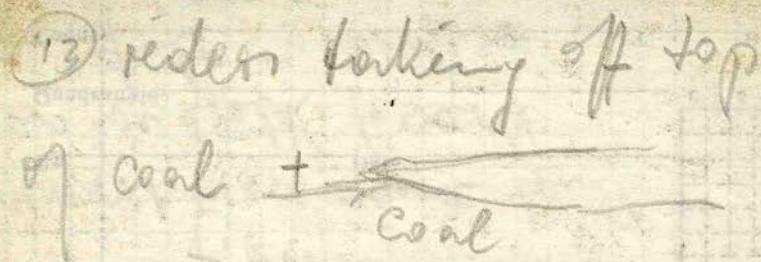 13 riders taking off top
of coal ±
coal